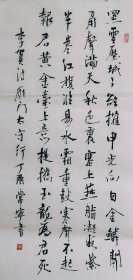 黑雲壓城城欲摧甲光向日金鱗開
角聲滿天秋色裏塞上燕脂凝夜紫
半卷紅旗臨易水霜重鼓寒聲不起
報君黃金臺上意提攜玉龍為君死
李賀詩雁門太守行 寧書